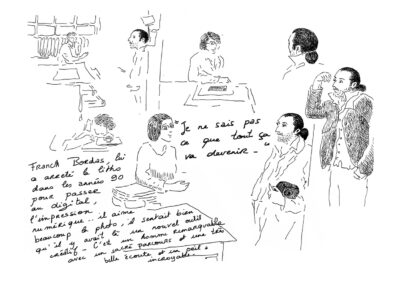 "Je ne sais pas
ce que tout ça
va devenir -"
Franck Bordas, lui
a arreté la litho
dans les années 90
pour passer
au digital,
l'impression
numérique... il aime
beaucoup la photo, il sentait bien
qu'il y avait là un nouvel outil
créatif - C'est un homme remarquable
avec un sacré parcours et une très
belle écoute et un oeil
incroyable